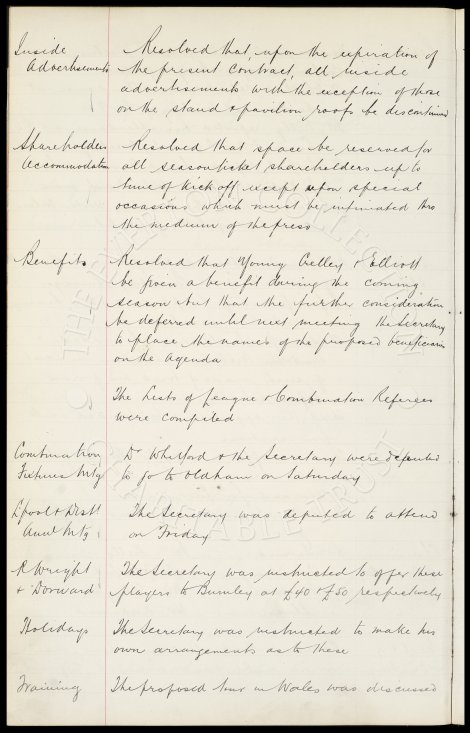 Inside Resolved that upon the expiration of
Advertisements the present contract, all inside
advertisements with the exception of those
on the stand & pavilion roofs be discontinued
Shareholders Resolved that space be reserved for
Accommodation all season ticket shareholders up to
time of kick off except upon special
occasions which must be intimated thro
the medium of the press
Benefits Resolved that Young Crelley & Elliott
be given a benefit during the coming
season but that the further consideration
be deferred until next meeting the Secretary
to place the names of the proposed beneficiaries
on the Agenda
The Lists of League & Combination Referees
were compiled
Combination Dr Whitford & the Secretary were deputed
Fixtures Mtg to go to Oldham on Saturday
Lpool & Dist The Secretary was deputed to attend
Annl Mtg on Friday
R Wright The Secretary was instructed to offer these
& Dorward players to Burnley at £40 & £50 respectively
Holidays The Secretary was instructed to make his
own arrangements as to these
Training The proposed tour in Wales was discussed
THE EVERTON COLLECTION
CHARITABLE TRUST